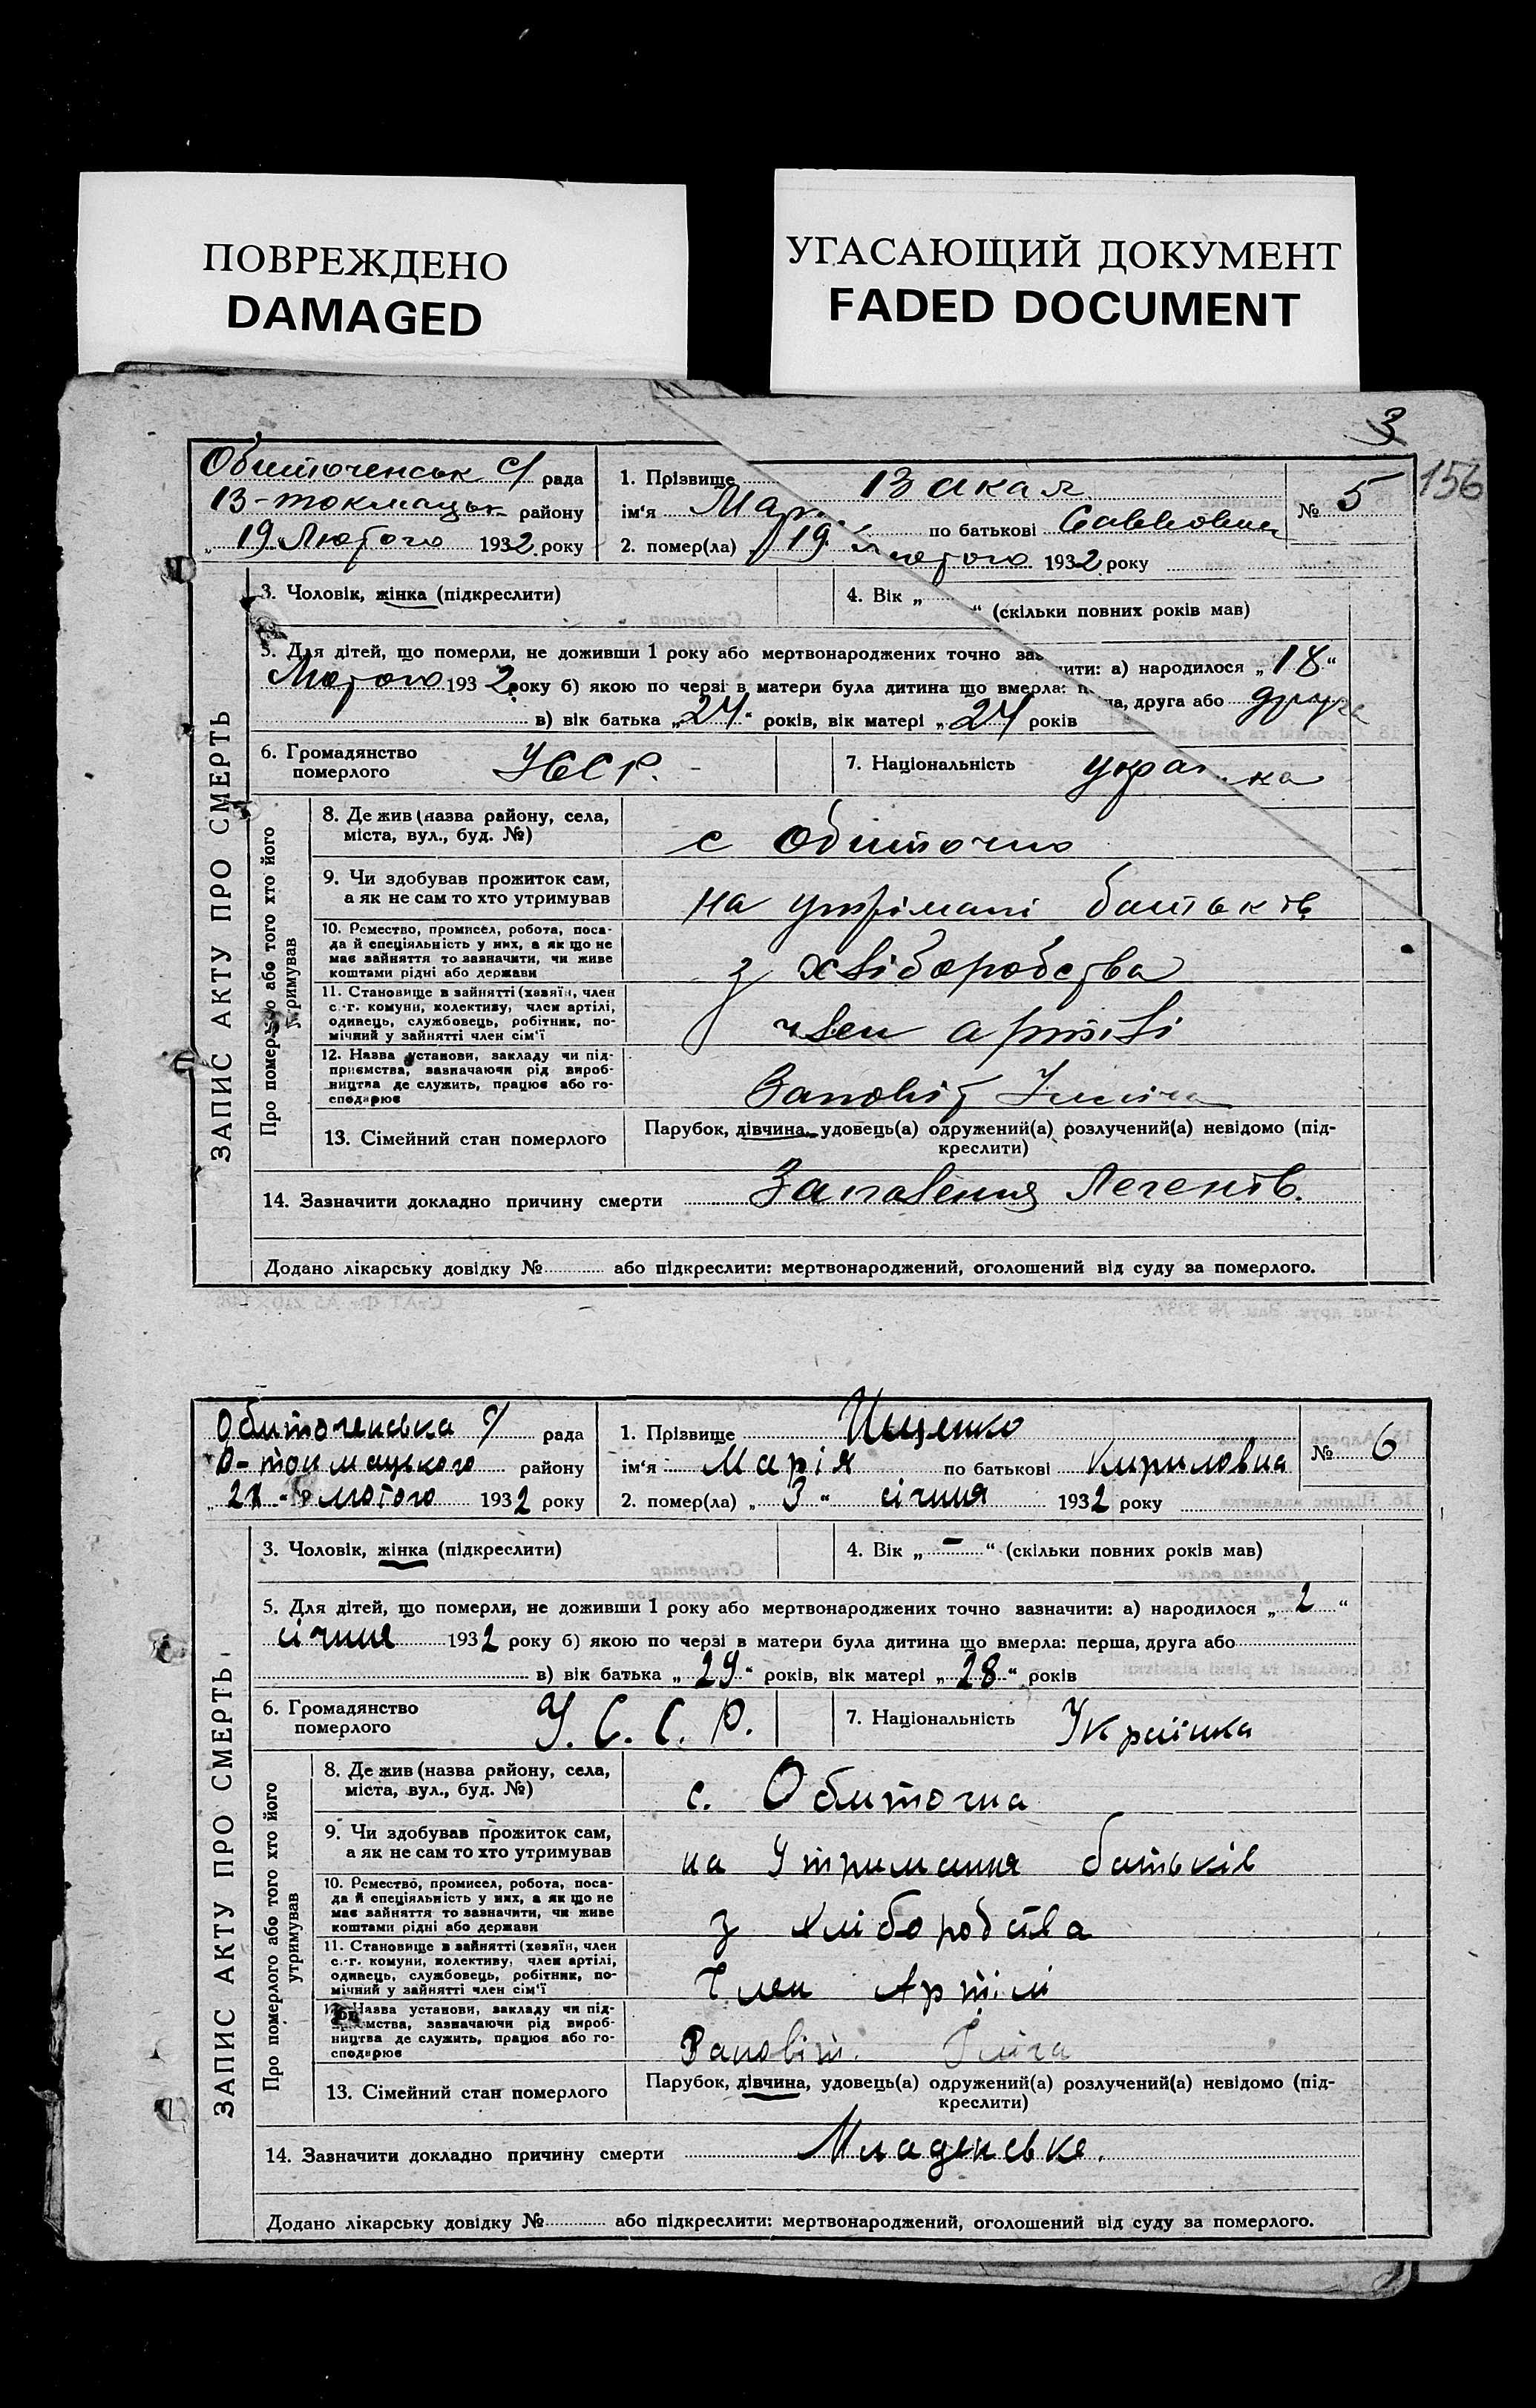 ПОВРЕЖДЕНО
DAMAGED
УГАСАЮЩИЙ ДОКУМЕНТ
FADED DOCUMENT
3
156
Обиточенськ с/ рада
В-токмацьк району
„ 19 Лютого 1932 року
1. Прізвище Вакал
ім'я Мар по батькові Савковна
№ 5
2. помер(ла) 19 Лютого 1932 року
3. Чоловік, жінка (підкреслити)
4. Вік „ “ (скільки повних років мав)
5. Для дітей, що померли, не доживши 1 року або мертвонароджених точно заз ити: а) народилося „ 18 “
Лютого 1932 року б) якою по черзі в матери була дитина що вмерла: п а, друга або друга
в) вік батька „ 24 “ років, вік матері „ 24 років
6. Громадянство померлого УССР.
7. Національність укра ка
ЗАПИС АКТУ ПРО СМЕРТЬ
Про померлого або того хто його утримував
8. Де жив (назва району, села,
міста, вул., буд. №)
с Обиточно
9. Чи здобував прожиток сам,
а як не сам то хто утримував
на утрімані батьків
10. Ремество, промисел, робота, поса-
да й спеціяльність у них, а як що не
має зайняття то зазначити, чи живе
коштами рідні або держави
з хліборобства
11. Становище в зайнятті (хазяїн, член
с.-г. комуни, колективу, член артілі,
одинець, службовець, робітник, по-
мічний у зайнятті член сім'ї
член артілі
12. Назва установи, закладу чи під-
приємства, зазначаючи рід вироб-
ництва де служить, працює або го-
сподарює
Заповіт Ілліча
13. Сімейний стан померлого
Парубок, дівчина, удовець(а) одружений(а) розлучений(а) невідомо (під-
креслити)
14. Зазначити докладно причину смерти Запалення Легенів.
Додано лікарську довідку № або підкреслити: мертвонароджений, оголошений від суду за померлого.
Обиточенська с/ рада
В-токмацького району
„ 21 “ лютого 1932 року
1. Прізвище Ищенко
ім'я Марія по батькові Кириловна
№ 6
2. помер(ла) „ 3 “ січня 1932 року
3. Чоловік, жінка (підкреслити)
4. Вік „ - “ (скільки повних років мав)
5. Для дітей, що померли, не доживши 1 року або мертвонароджених точно зазначити: а) народилося „ 2 “
січня 1932 року б) якою по черзі в матери була дитина що вмерла: перша, друга або
в) вік батька „ 29 “ років, вік матері „ 28 “ років
6. Громадянство померлого У. С. С. Р.
7. Національність Українка
ЗАПИС АКТУ ПРО СМЕРТЬ
Про померлого або того хто його утримував
8. Де жив (назва району, села,
міста, вул., буд. №)
с. Обиточна
9. Чи здобував прожиток сам,
а як не сам то хто утримував
на Утримання батьків
10. Ремество, промисел, робота, поса-
да й спеціяльність у них, а як що не
має зайняття то зазначити, чи живе
коштами рідні або держави
з хліборобства
11. Становище в зайнятті (хазяїн, член
с.-г. комуни, колективу, член артілі,
одинець, службовець, робітник, по-
мічний у зайнятті член сім'ї
Член Артілі
12. Назва установи, закладу чи під-
приємства, зазначаючи рід вироб-
ництва де служить, працює або го-
сподарює
Заповіт. Іліча
13. Сімейний стан померлого
Парубок, дівчина, удовець(а) одружений(а) розлучений(а) невідомо (під-
креслити)
14. Зазначити докладно причину смерти Младенське.
Додано лікарську довідку № або підкреслити: мертвонароджений, оголошений від суду за померлого.